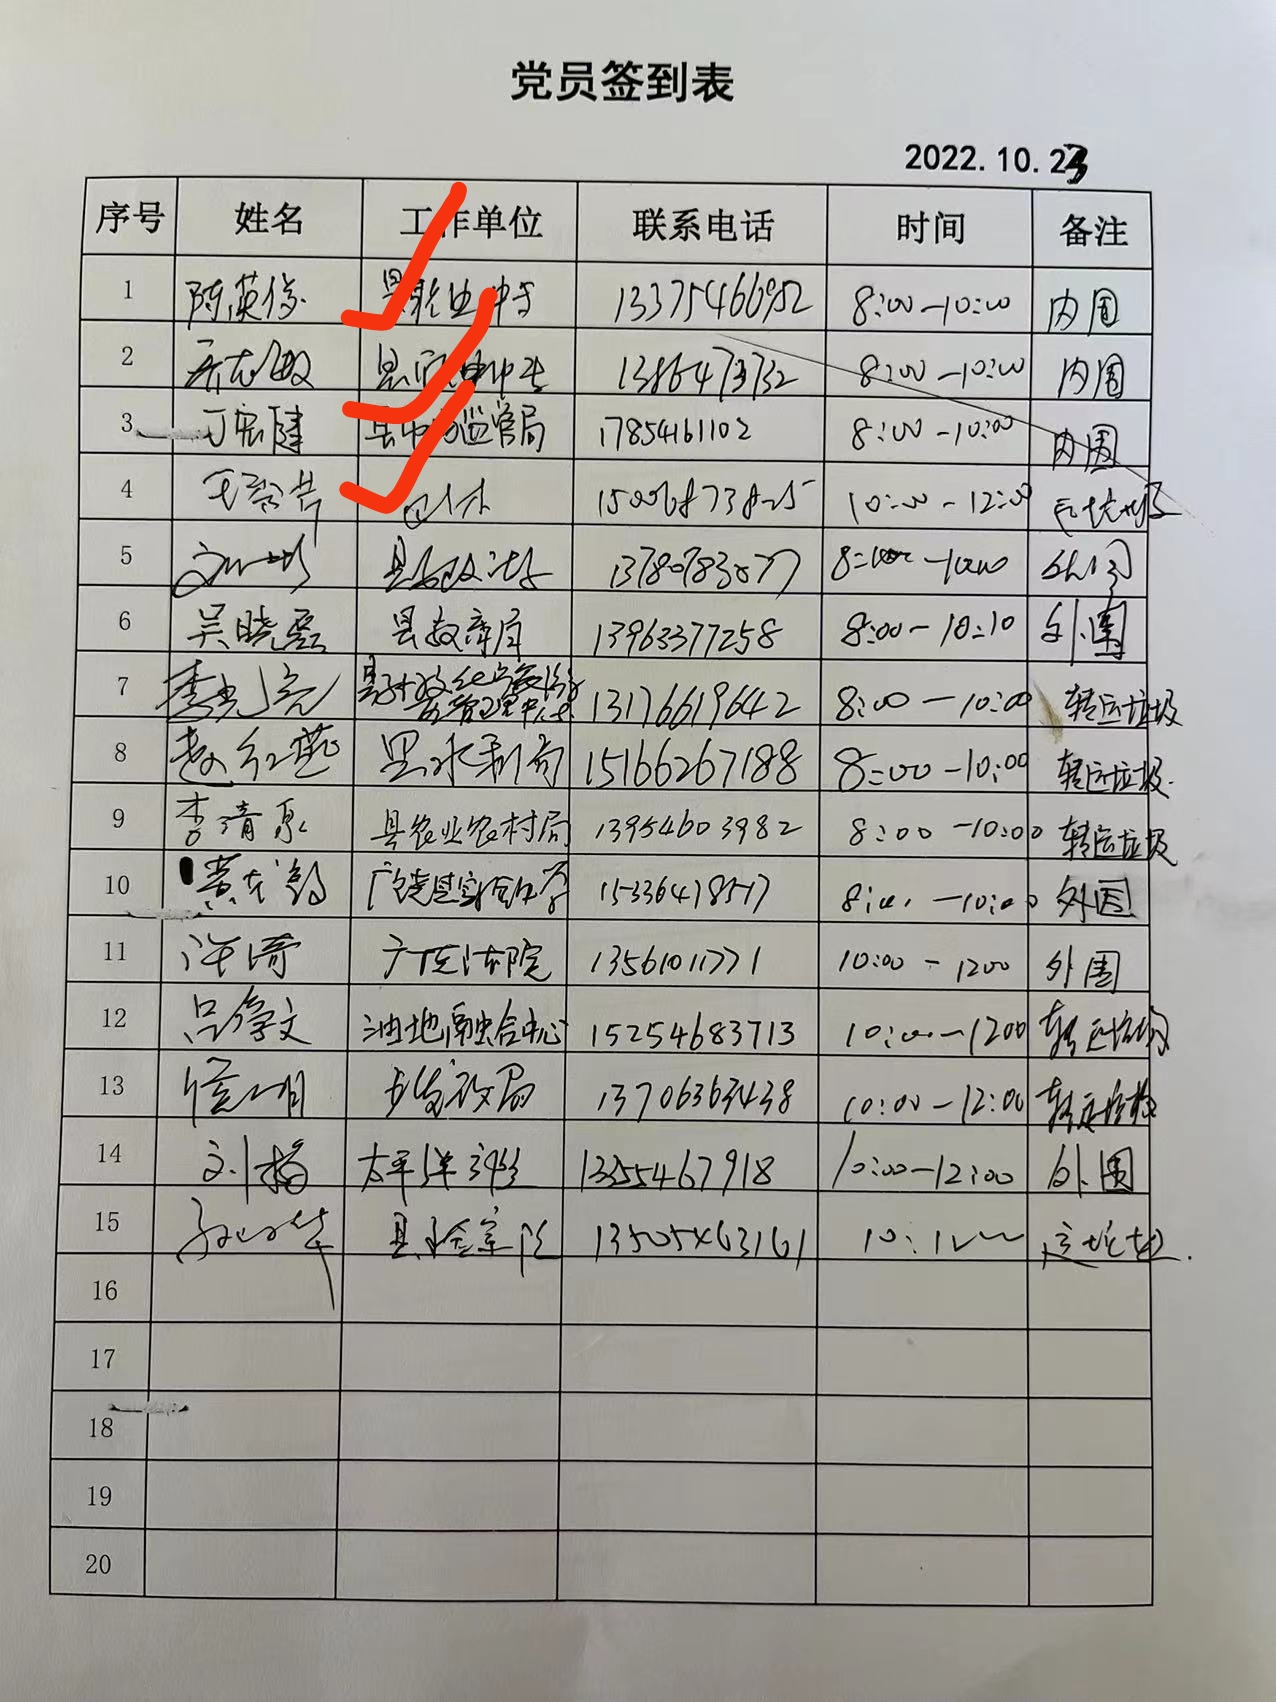 党员签到表
2022.10.23
序号 姓名 工作单位 联系电话 时间 备注
1 陈英俊 13375466952 8:00-10:00 内围
2 13864773732 8:00-10:00 内围
3 丁宏健 县市场监管局 17854161102 8:00-10:00 内围
4 15006873825 10:00-12:00
5 13780783077
6 吴晓磊 县教育局 13963377258 8:00-10:10 外围
7 李光亮 13176619642 8:00-10:00 转运垃圾
8 赵红燕 县水利局 15166267188 8:00-10:00 转运垃圾.
9 李清泉 县农业农村局 13954603982 8:00-10:00 转运垃圾
10 广饶县实验中学 15336478517 -10:00 外围
11 许琦 法院 13561011771 10:00-1200 外围
12 吕争文 油地融合中心 15254683713 10:00-1200 转运垃圾
13 发改局 13706363438 10:00-12:00 转运垃圾
14 刘梅 太平洋 13255467918 10:00-12:00 外围
15 县检察院 13505463161
16
17
18
19
20